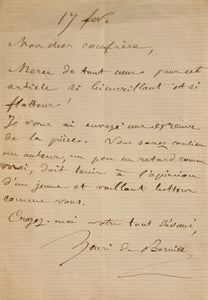 17 fév.
Mon cher confrère,
Merci de tout cœur pour cet
article si bienveillant et si
flatteur !
Je vous ai envoyé une épreuve
de la pièce. Vous savez combien
un auteur, un peu en retard comme
moi, doit tenir à l'opinion
d'un jeune et vaillant lutteur
comme vous.
Croyez-moi votre tout dévoué,
Henri de Bornier